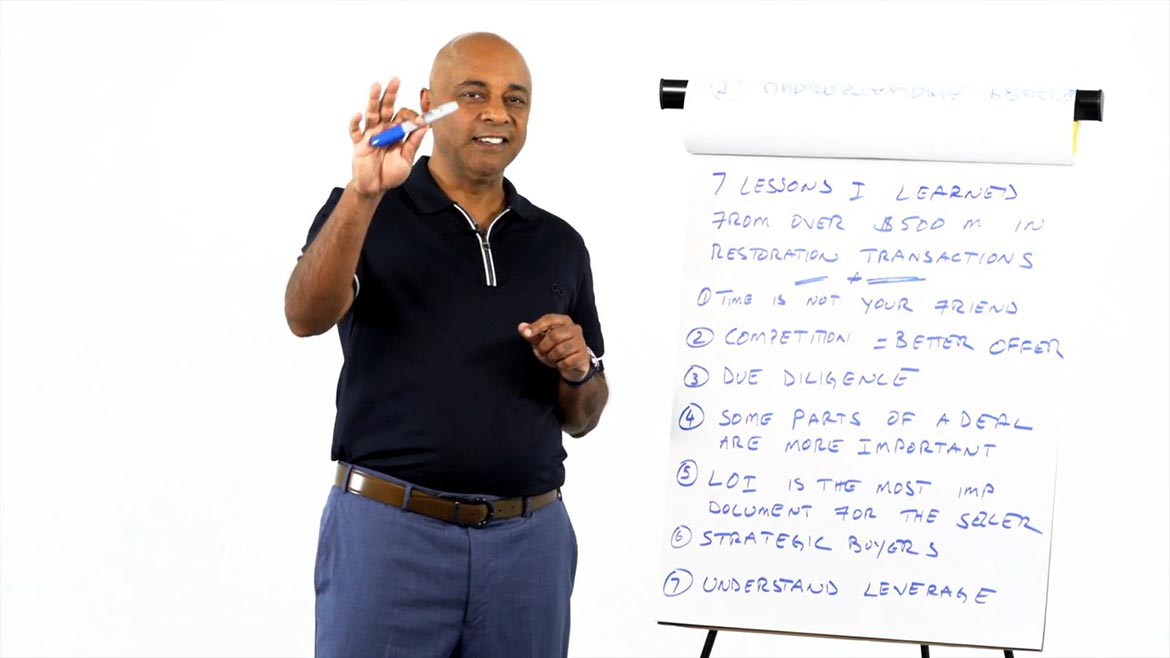 7 LESSONS I LEARNED
FROM OVER $500 M IN
RESTORATION TRANSACTIONS
① TIME IS NOT YOUR FRIEND
② COMPETITION = BETTER OFFER
③ DUE DILIGENCE
④ SOME PARTS OF A DEAL
ARE MORE IMPORTANT
⑤ LOI IS THE MOST IMP
DOCUMENT FOR THE SELLER
⑥ STRATEGIC BUYERS
⑦ UNDERSTAND LEVERAGE